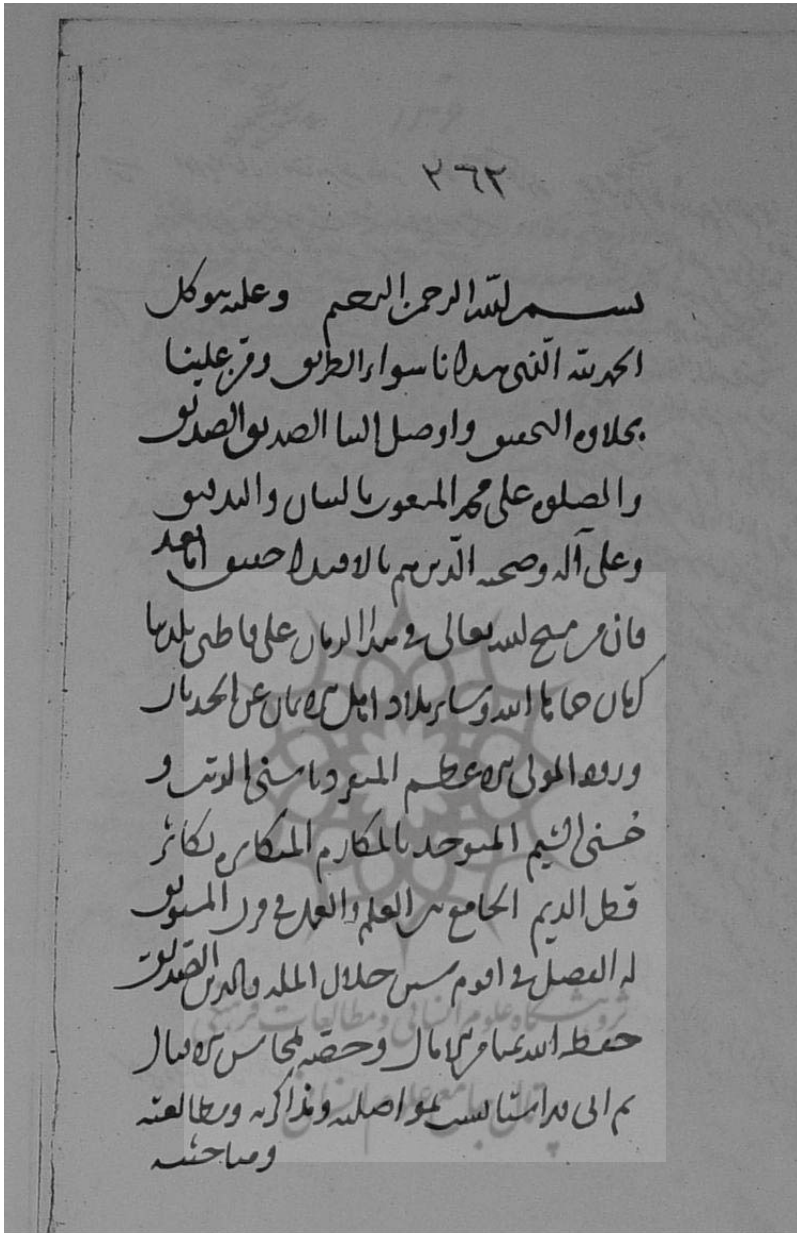 ٣٦٢
بسم الله الرحمن الرحيم وعليه توكل
الحمد لله الذى هدانا سواء الطريق وقرب علينا
بحلاوة التحقيق واوصل الينا الصديق الصديق
والصلوة على محمد المبعوث بالبيان والتدقيق
وعلى آله وصحبه الذين هم بالاقتداء حقيق اما بعد
فان من منح الله تعالى فى هذا الزمان على قاطنى بلدتنا
كرمان حماها الله وساير بلاد اهل الايمان عن الحدثان
ورود المولى الاعظم المتفرد باسنى الرتب و
حسنى الشيم المتوحد بالمكارم المتكاثره تكاثر
قطل الديم الجامع بين العلم والعمل فى قرن
له الفضل فى اقوم سنن جلال المله والدين الصديق
حفظه الله تعالى الامال وخصه بمحاسن الاقبال
ثم انى استانست بمواصلته ومذاكرته ومطالعته
ومباحثته
پژوهشگاه علوم انسانی و مطالعات فرهنگی
پرتال جامع علوم انسانی